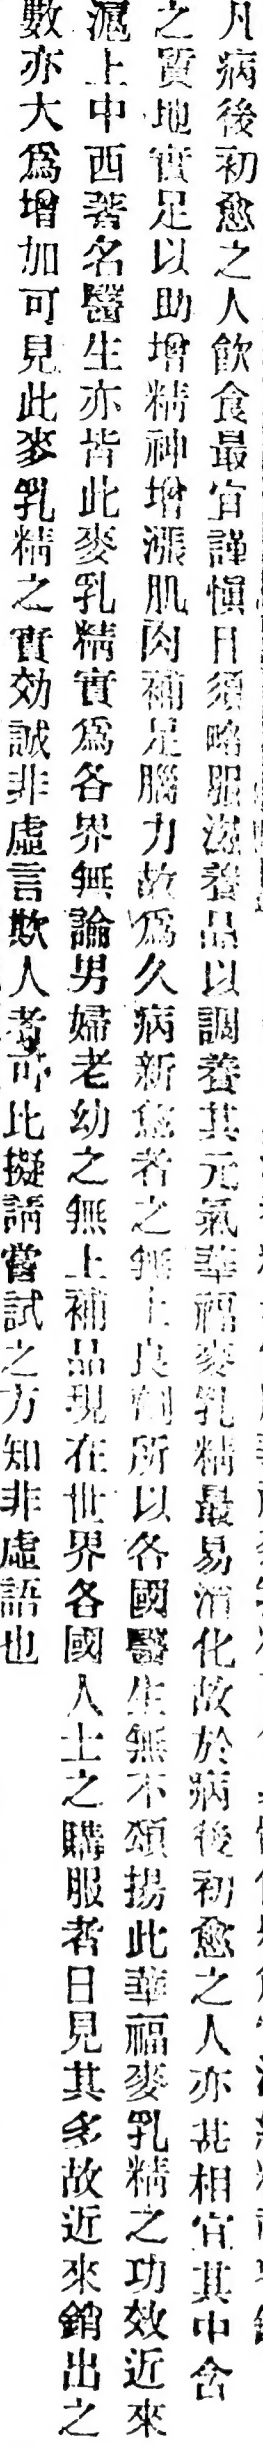 凡病後初愈之人飲食最宜謹愼日須略服滋養品以調養其元氣華福麥乳精最易消化故於病後初愈之人亦甚相宜其中含
之質地實足以助增精神增漲肌肉補足腦力故爲久病新愈者之無上良劑所以各國醫生無不頌揚此華福麥乳精之功效近來
滬上中西著名醫生亦皆此麥乳精實爲各界無論男婦老幼之無上補品現在世界各國人士之購服者日見其多故近來銷出之
數亦大爲增加可見此麥乳精之實効誠非虛言欺人者可比擬請嘗試之方知非虛語也